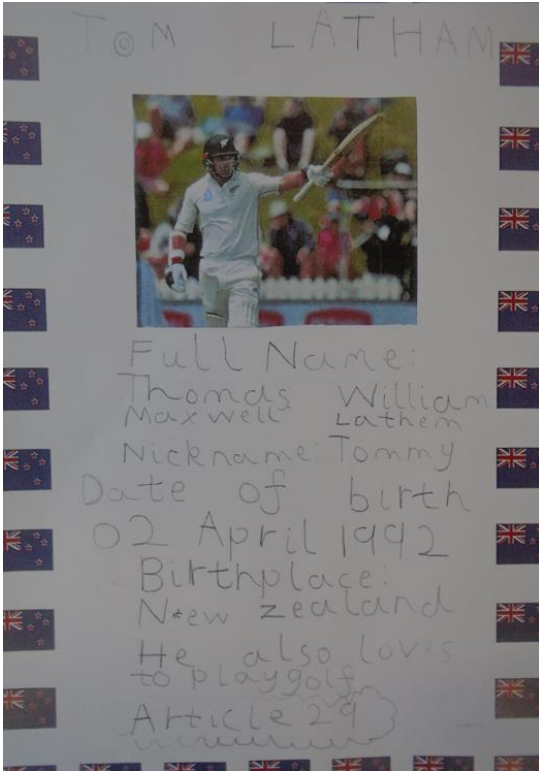 TOM LATHAM
Full Name:
Thomas William
Maxwell Lathem
Nickname: Tommy
Date of birth
02 April 1992
Birthplace:
New zealand
He also loves
to playgolf
Article 29